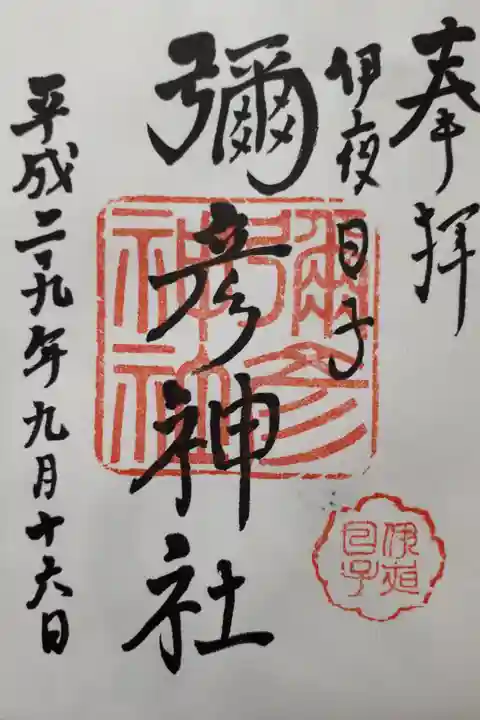 奉拝
伊夜日子
彌彦神社
平成二十九年九月十六日
彌彦
神社